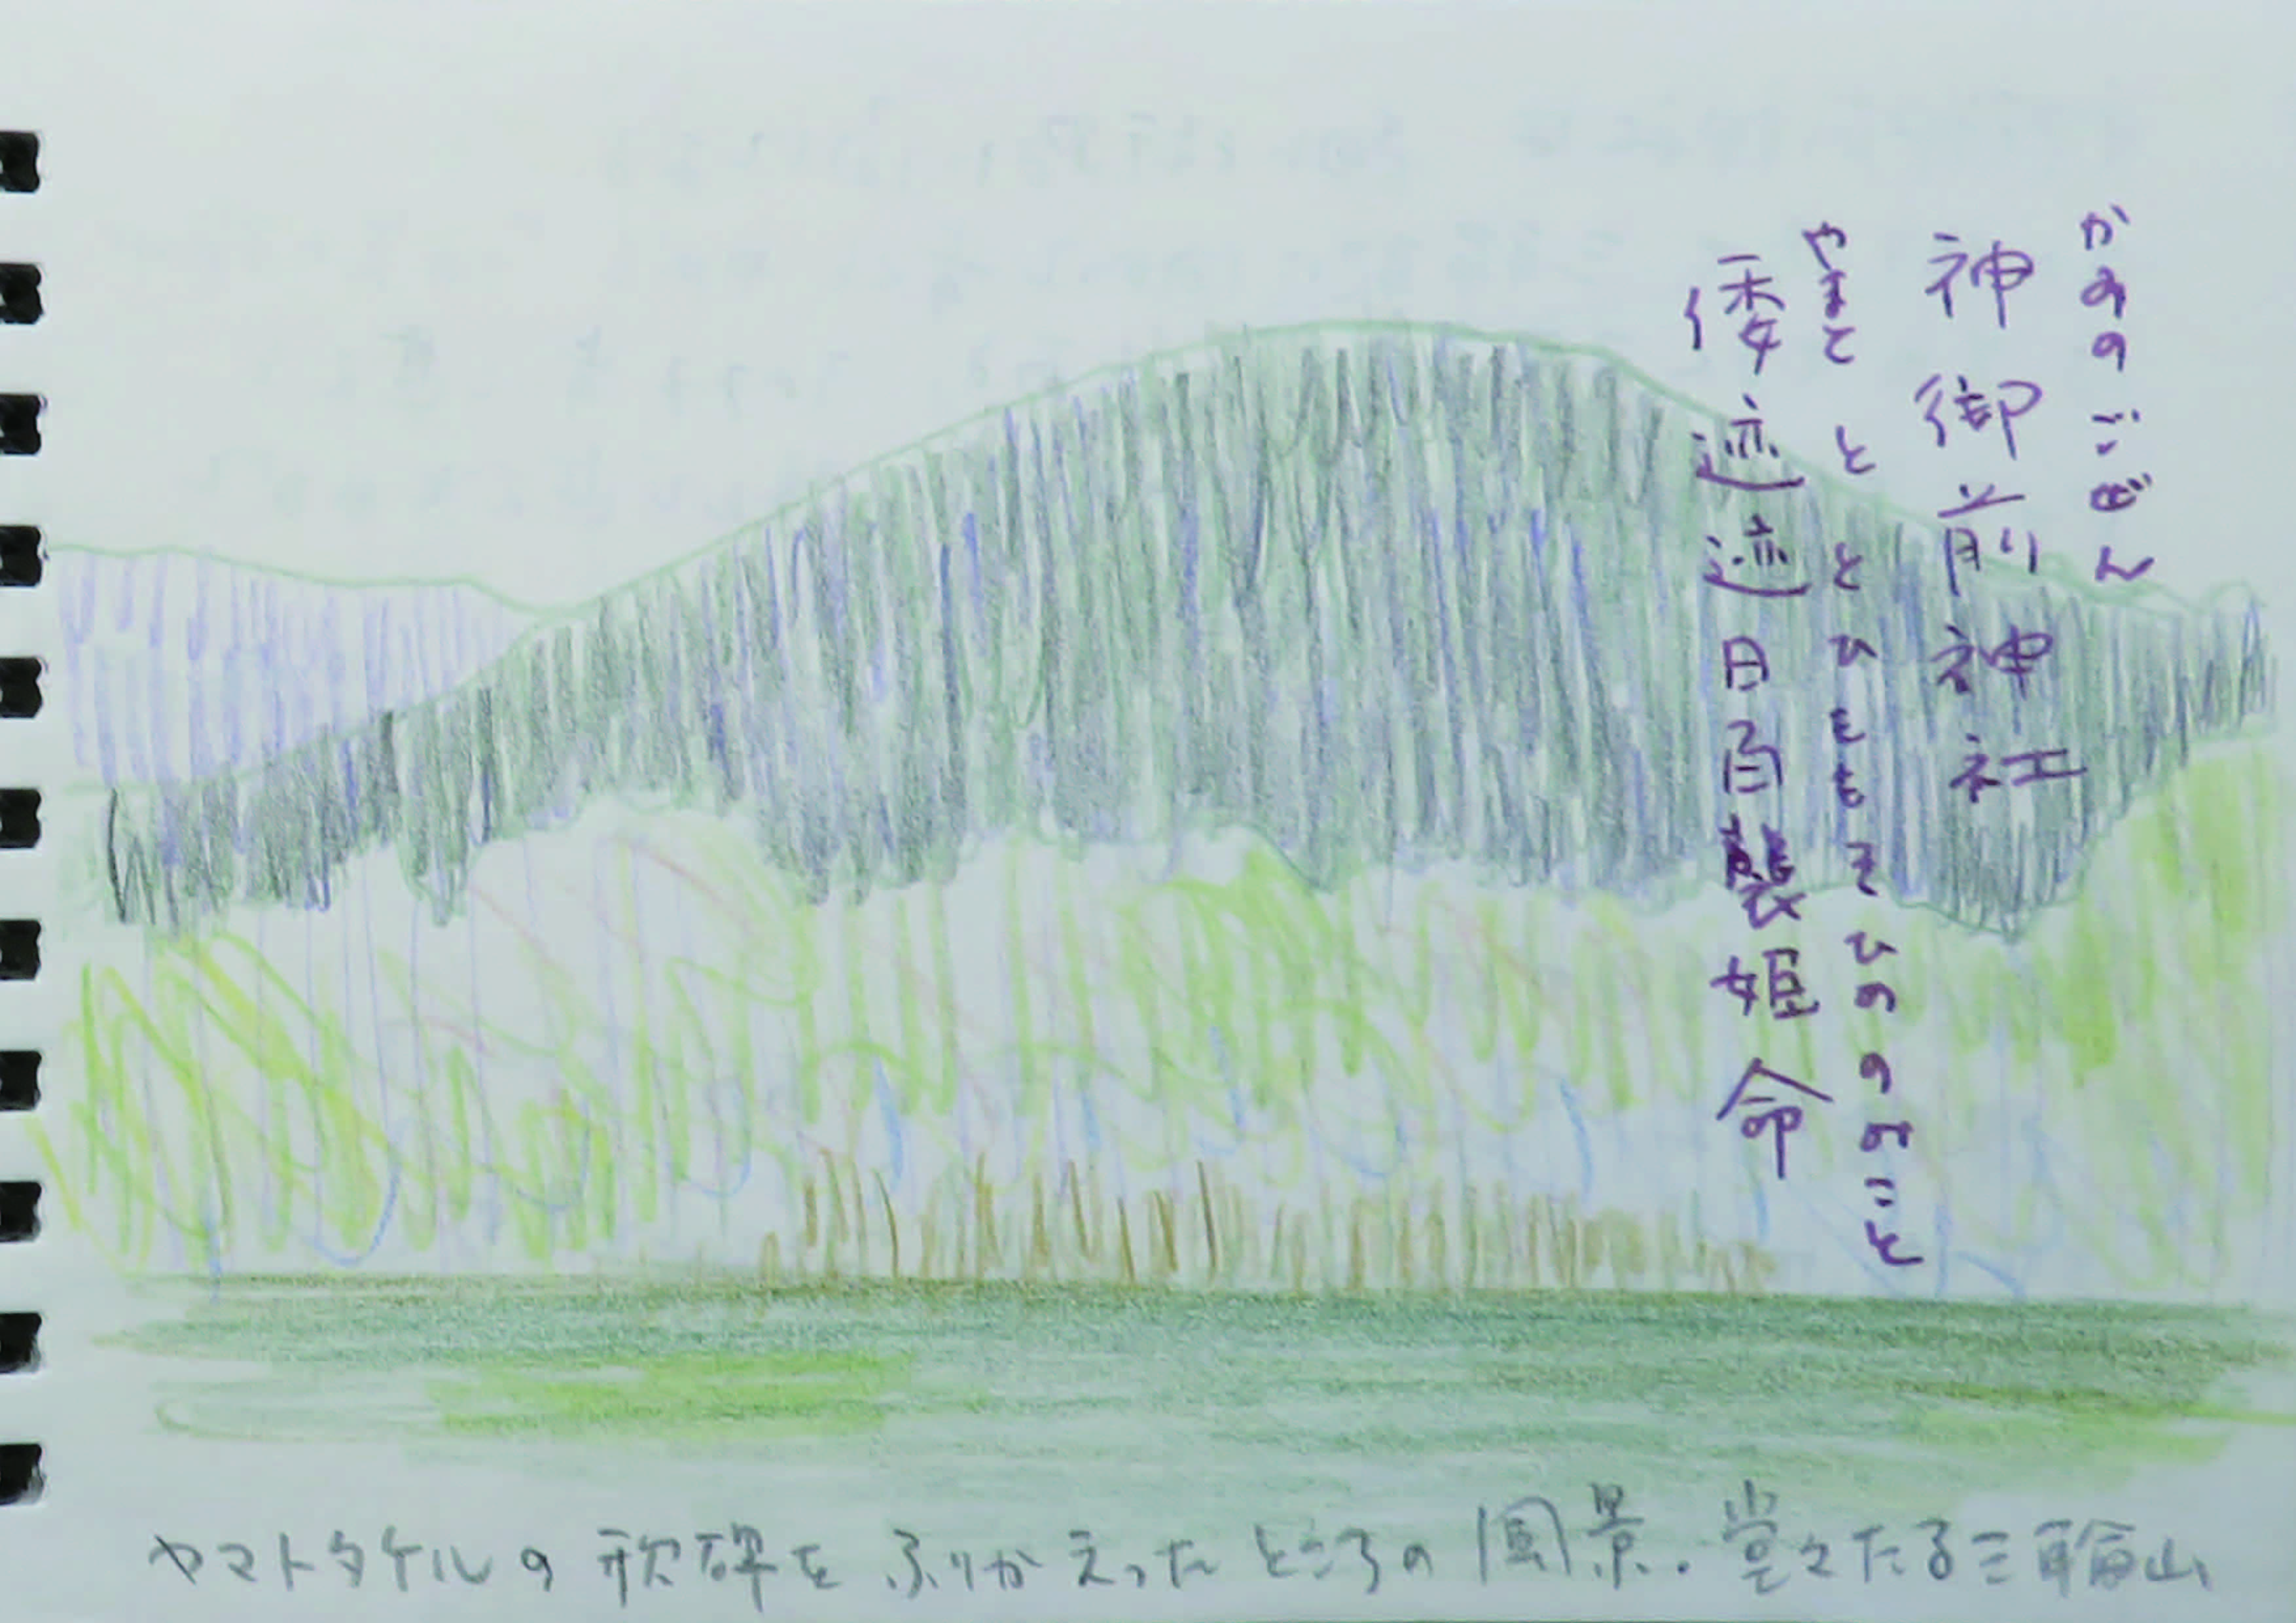 かみのごぜん
神御前神社
やまとととひももそひののみこと
倭迹迹日百襲姫命
ヤマトタケルの歌碑をふりかえったところの風景.堂々たる三輪山